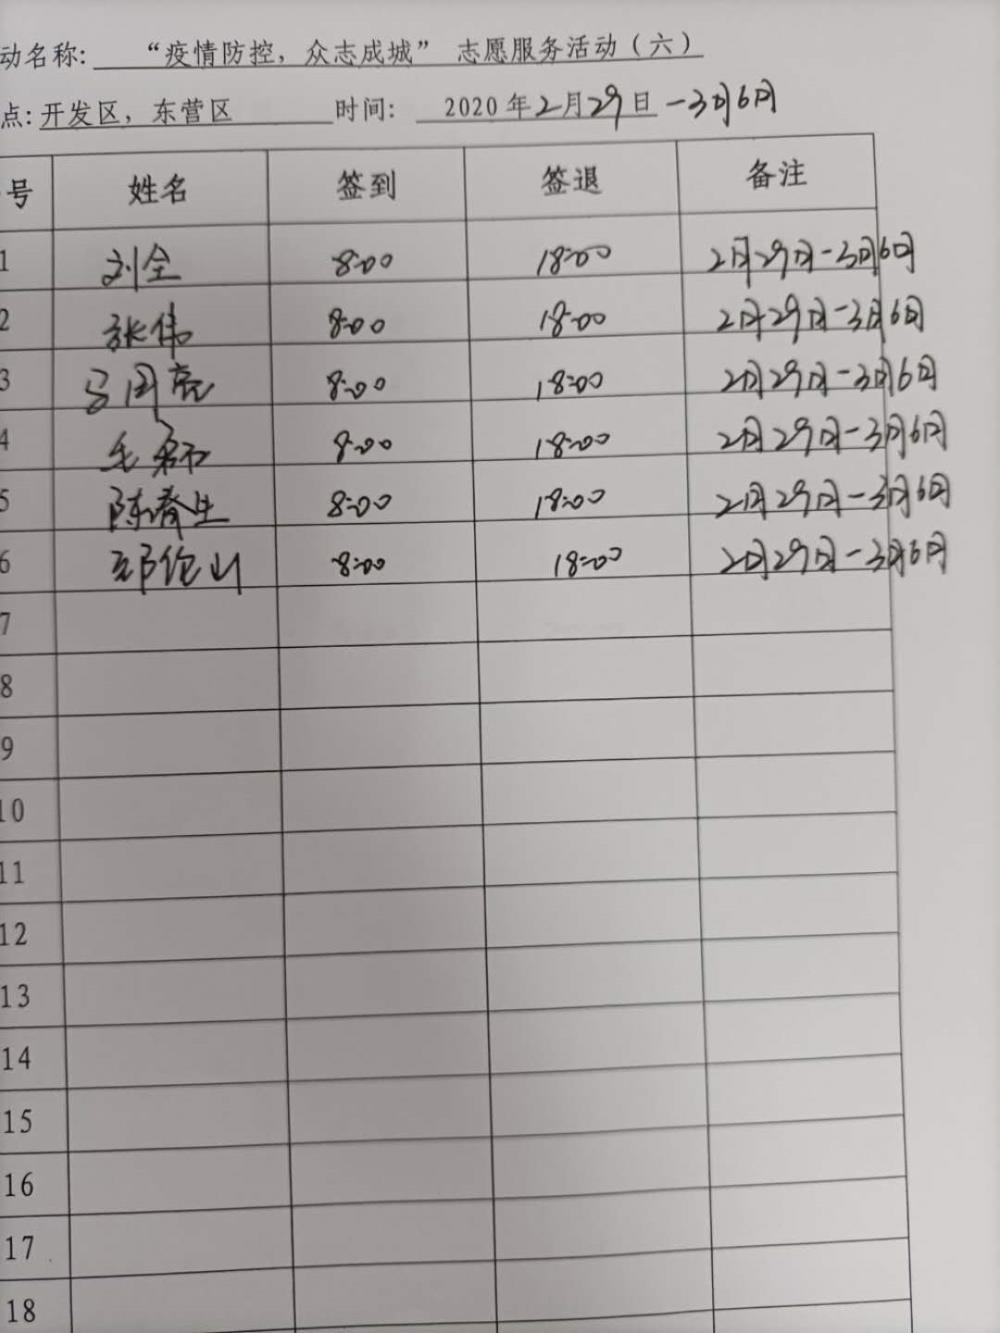 动名称: “疫情防控，众志成城” 志愿服务活动（六）
点: 开发区，东营区 时间: 2020年2月29日-3月6日
号 姓名 签到 签退 备注
1 刘全 8:00 18:00 2月29日-3月6日
2 张伟 8:00 18:00 2月29日-3月6日
3 马周亮 8:00 18:00 2月29日-3月6日
4 毛 8:00 18:00 2月29日-3月6日
5 陈春生 8:00 18:00 2月29日-3月6日
6 山 8:00 18:00 2月29日-3月6日
7
8
9
10
11
12
13
14
15
16
17
18